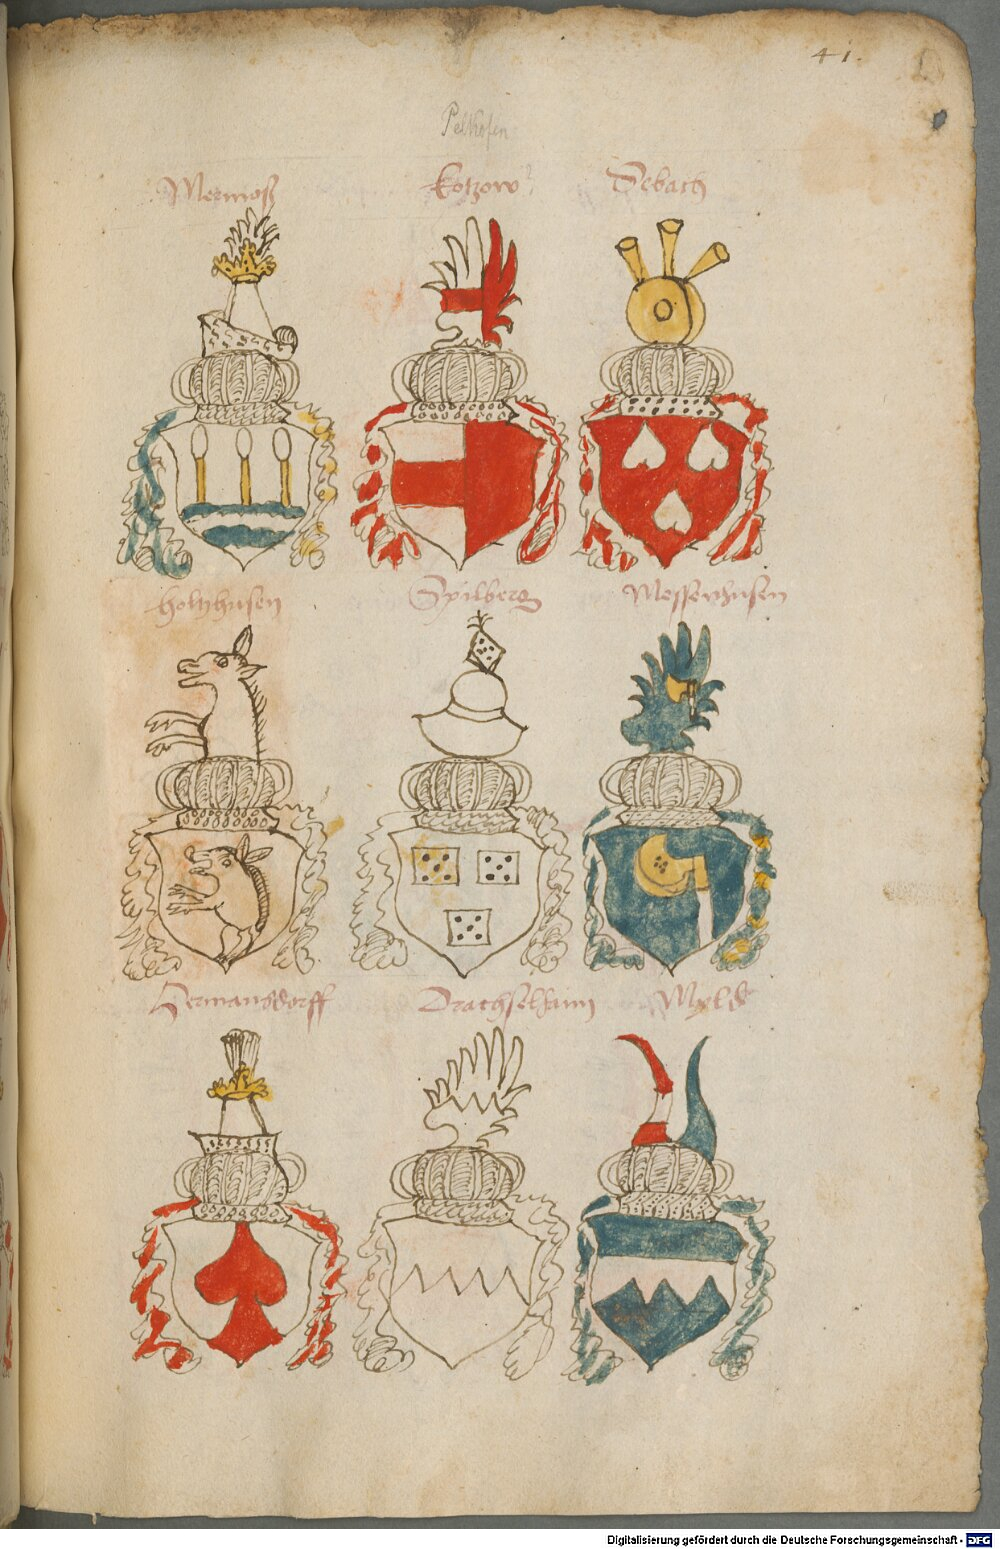 41.
Pelkofen
Mermosz
Kotzow
Sebach
Holtzhusen
Spilberg
Messenhusen
Hermansdorff
Drachselhaim
Digitalisierung gefördert durch die Deutsche Forschungsgemeinschaft - DFG